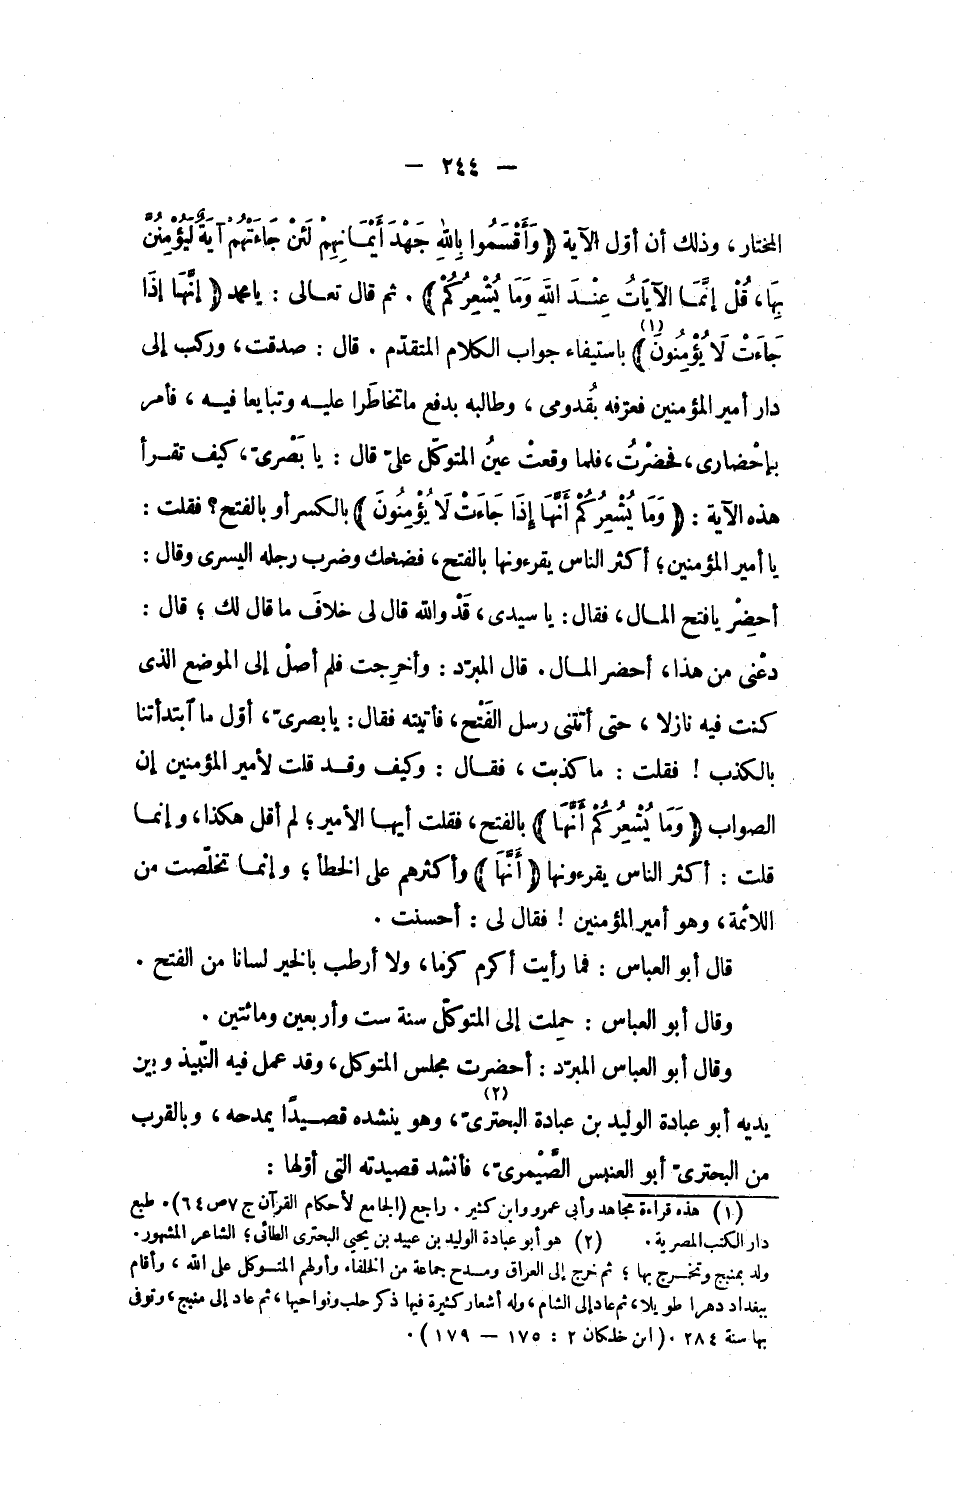 — ٢٤٤ —
المختار، وذلك أن أوّل الآية ﴿وَأَقْسَمُوا بِاللهِ جَهْدَ أَيْمَـانِهِمْ لَئِنْ جَاءَتْهُمْ آيَةٌ لَيُؤْمِنُنَّ
بِهَا، قُلْ إنَّمَـا الآيَاتُ عِنْـدَ اللهِ وَمَا يُشْعِرُكُمْ﴾. ثم قال تعـالى : يا محمد ﴿إنَّهَا إذَا
جَاءَتْ لَا يُؤْمِنُونَ﴾(١) باستيفاء جواب الكلام المتقدّم . قال : صدقت، وركب إلى
دار أمير المؤمنين فعرّفه بقُدومى ، وطالبه بدفع ما تخاطَرا عليـه وتبايعا فيـه ، فأمر
بإحْضارى، فحضرْتُ، فلما وقعتْ عينُ المتوكّل علىّ قال : يا بَصْرىّ، كيف تقـرأ
هذه الآية : ﴿وَمَا يُشْعِرُكُمْ أَنَّهَا إِذَا جَاءَتْ لَا يُؤْمِنُونَ﴾ بالكسر أو بالفتح؟ فقلت :
يا أمير المؤمنين؛ أكثر الناس يقرءونها بالفتح، فضحك وضرب رجله اليسرى وقال :
أحضِرْ يا فتح المـال، فقال : يا سيدى، قَدْ والله قال لى خلافَ ما قال لك ؛ قال :
دعْنى من هذا، أحضر المـال . قال المبرّد : وأخرِجت فلم أصلْ إلى الموضع الذى
كنت فيه نازلا ، حتى أتتنى رسل الفَتْح، فأتيته فقال : يا بصرىّ، أوّل ما ٱبتدأتنا
بالكذب ! فقلت : ما كذبت ، فقـال : وكيف وقـد قلت لأمير المؤمنين إن
الصواب ﴿وَمَا يُشْعِرُكُمْ أَنَّهَا﴾ بالفتح، فقلت أيهـا الأمير؛ لم أقل هكذا، وإنمـا
قلت : أكثر الناس يقرءونها ﴿أَنَّهَا﴾ وأكثرهم على الخطأ ؛ وإنمـا تخلّصت من
اللائمة، وهو أمير المؤمنين ! فقال لى : أحسنت .
قال أبو العباس : فما رأيت أكرم كرما، ولا أرطب بالخير لسانا من الفتح .
وقال أبو العباس : حمِلت إلى المتوكّل سنة ست وأربعين ومائتين .
وقال أبو العباس المبرّد : أحضرت مجلس المتوكل، وقد عمل فيه النّبيذ وبين
يديه أبو عبادة الوليد بن عبادة البحترىّ(٢)، وهو ينشده قصـيدًا يمدحه ، وبالقرب
من البحترىّ أبو العنبس الصَّيْمرىّ، فأنشد قصيدته التى أوّلها :
(١) هذه قراءة مجاهد وأبى عمرو وابن كثير . راجع (الجامع لأحكام القرآن ج ٧ ص ٦٤). طبع
دار الكتب المصرية . (٢) هو أبو عبادة الوليد بن عبيد بن يحيى البحترى الطائى؛ الشاعر المشهور.
ولد بمنبج وتخـرج بها ؛ ثم خرج إلى العراق ومـدح جماعة من الخلفاء وأولهم المتـوكل على الله ، وأقام
ببغداد دهرا طويلا، ثم عاد إلى الشام، وله أشعار كثيرة فيها ذكر حلب ونواحيها، ثم عاد إلى منبج، وتوفى
بها سنة ٢٨٤ . (ابن خلكان ٢ : ١٧٥ — ١٧٩) .